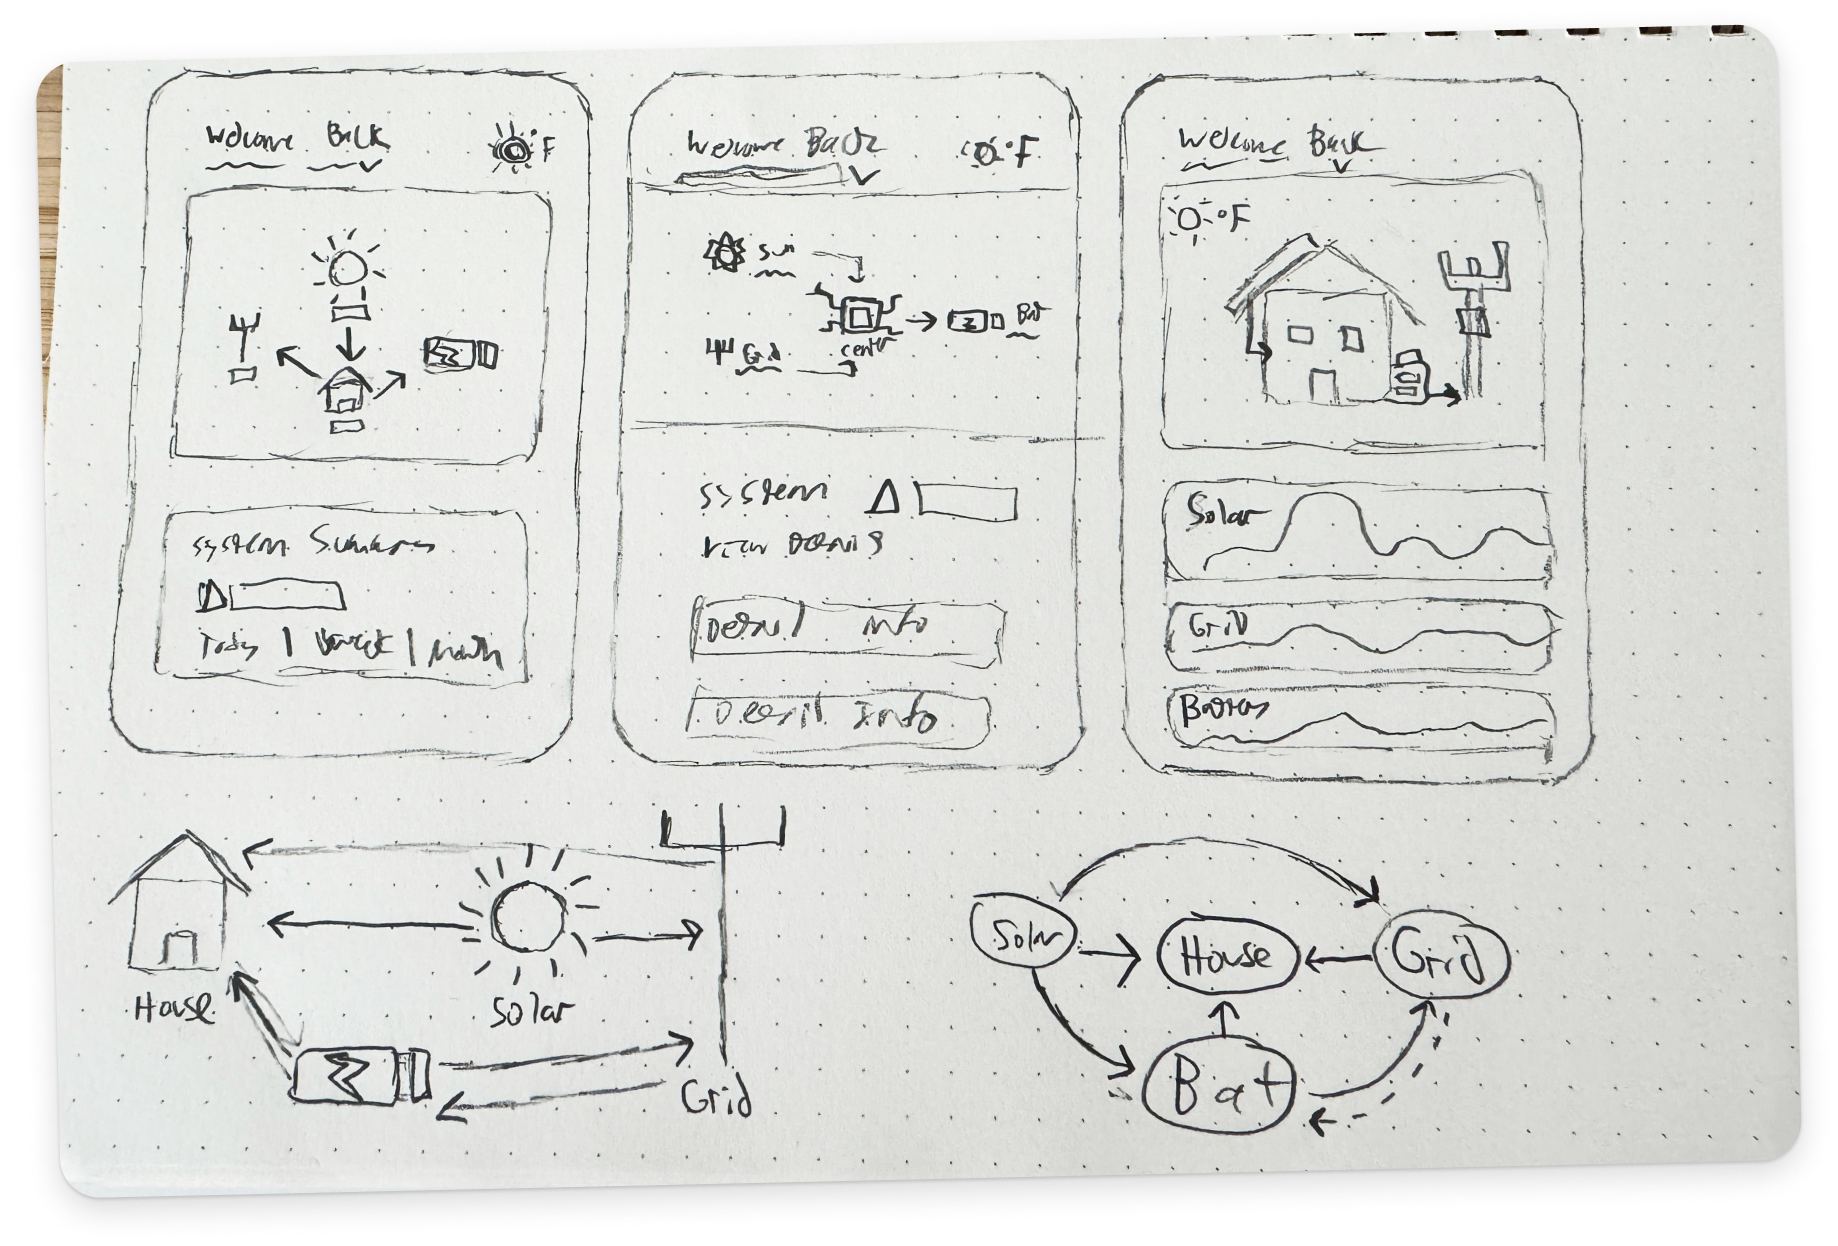 Welcome Back
°F
System Summary
Today | Week | Month
Welcome Back
°F
Sun
Bat
Grid
center
System
View Details
Detail Info
Detail Info
Welcome Back
°F
Solar
Grid
Battery
House
Solar
Grid
Solar
House
Grid
Bat